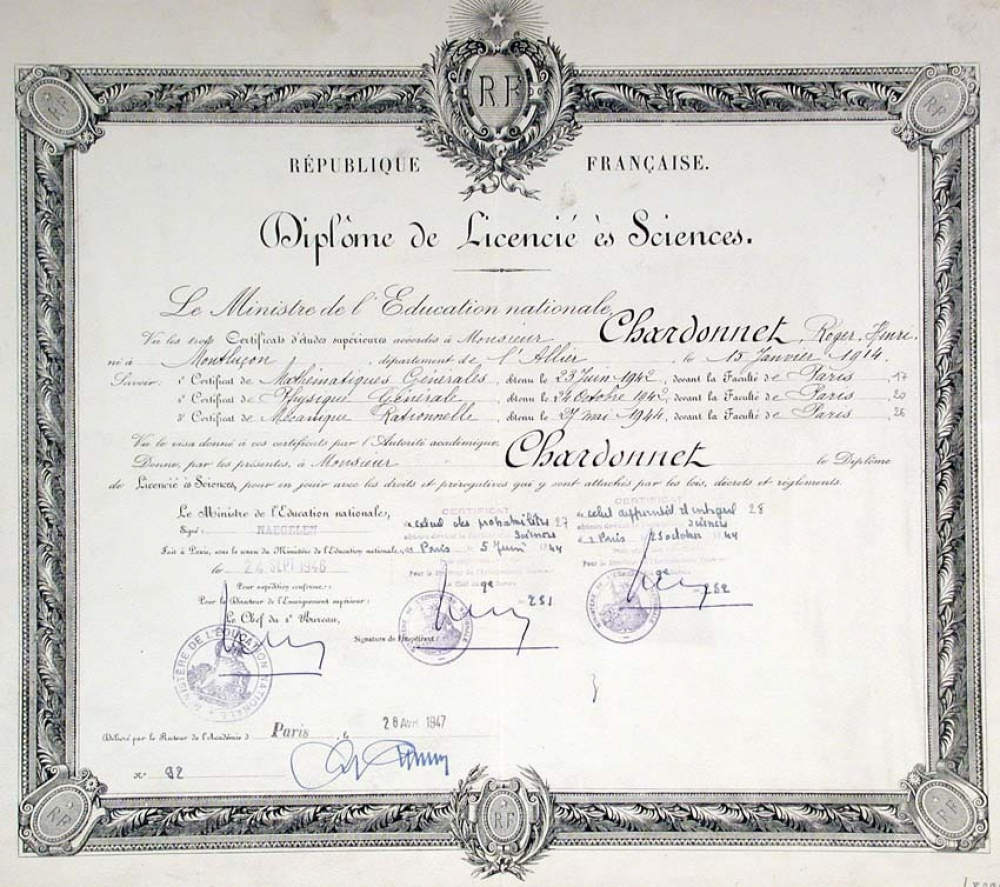 RF
RF
RF
RÉPUBLIQUE FRANÇAISE.
Diplôme de Licencié ès Sciences.
Le Ministre de l'Education nationale,
Vu les trois Certificats d'études supérieures accordés à Monsieur Chardonnet, Roger Henri
né à Montluçon, département de l'Allier le 15 Janvier 1914,
Savoir: 1° Certificat de Mathématiques Générales, obtenu le 23 Juin 1942, devant la Faculté de Paris, 17
2° Certificat de Physique Générale, obtenu le 24 Octobre 1942, devant la Faculté de Paris 20
3° Certificat de Mécanique Rationnelle, obtenu le 27 mai 1944, devant la Faculté de Paris 26
Vu le visa donné à ces certificats par l'Autorité académique,
Donne, par les présentes, à Monsieur Chardonnet le Diplôme
de Licencié ès Sciences, pour en jouir avec les droits et prérogatives qui y sont attachés par les lois, décrets et règlements.
Le Ministre de l'Education nationale,
Signé: NAEGELEN
Fait à Paris, sous le sceau du Ministère de l'Education nationale,
le 24 SEPT 1946
Pour expédition conforme:
Pour le Directeur de l'Enseignement supérieur:
Le Chef du 2e Bureau,
MINISTÈRE DE L'EDUCATION NATIONALE
CERTIFICAT
calcul des probabilités 27
Sciences
Paris 5 Juin 44
Pour le Directeur de l'Enseignement supérieur
Le Chef du Bureau
281
Signature de l'impétrant:
CERTIFICAT
calcul différentiel et intégral 28
Sciences
Paris 23 octobre 44
Pour le Directeur de l'Enseignement
282
Délivré par le Recteur de l'Académie d Paris, le 28 AVR 1947
N° 92
RF
RF
RF